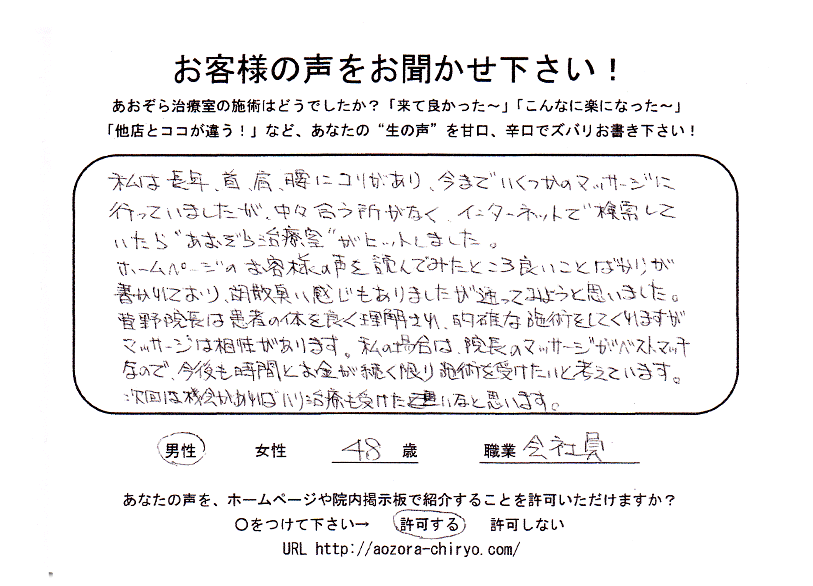 お客様の声をお聞かせ下さい！
あおぞら治療室の施術はどうでしたか？「来て良かった～」「こんなに楽になった～」
「他店とココが違う！」など、あなたの“生の声”を甘口、辛口でズバリお書き下さい！
私は長年、首、肩、腰にコリがあり、今までいくつかのマッサージに
行っていましたが、中々合う所がなく、インターネットで検索して
いたら“あおぞら治療室”がヒットしました。
ホームページのお客様の声を読んでみたところ良いことばかりが
書かれており、胡散臭い感じもありましたが通ってみようと思いました。
菅野院長は患者の体を良く理解され、的確な施術をしてくれますが
マッサージは相性があります。私の場合は、院長のマッサージがベストマッチ
なので、今後も時間とお金が続く限り施術を受けたいと考えています。
次回は機会があればハリ治療も受けたいなと思います。
男性 女性 48 歳 職業 会社員
あなたの声を、ホームページや院内掲示板で紹介することを許可いただけますか？
○をつけて下さい→ 許可する 許可しない
URL http://aozora-chiryo.com/